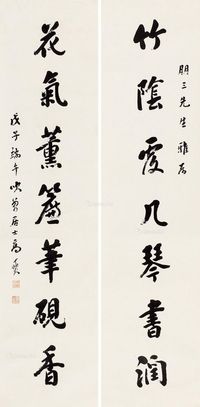 朋三先生雅
竹陰覆几琴書潤
花氣薰簾筆硯香
戊子端午吹萬居士高燮